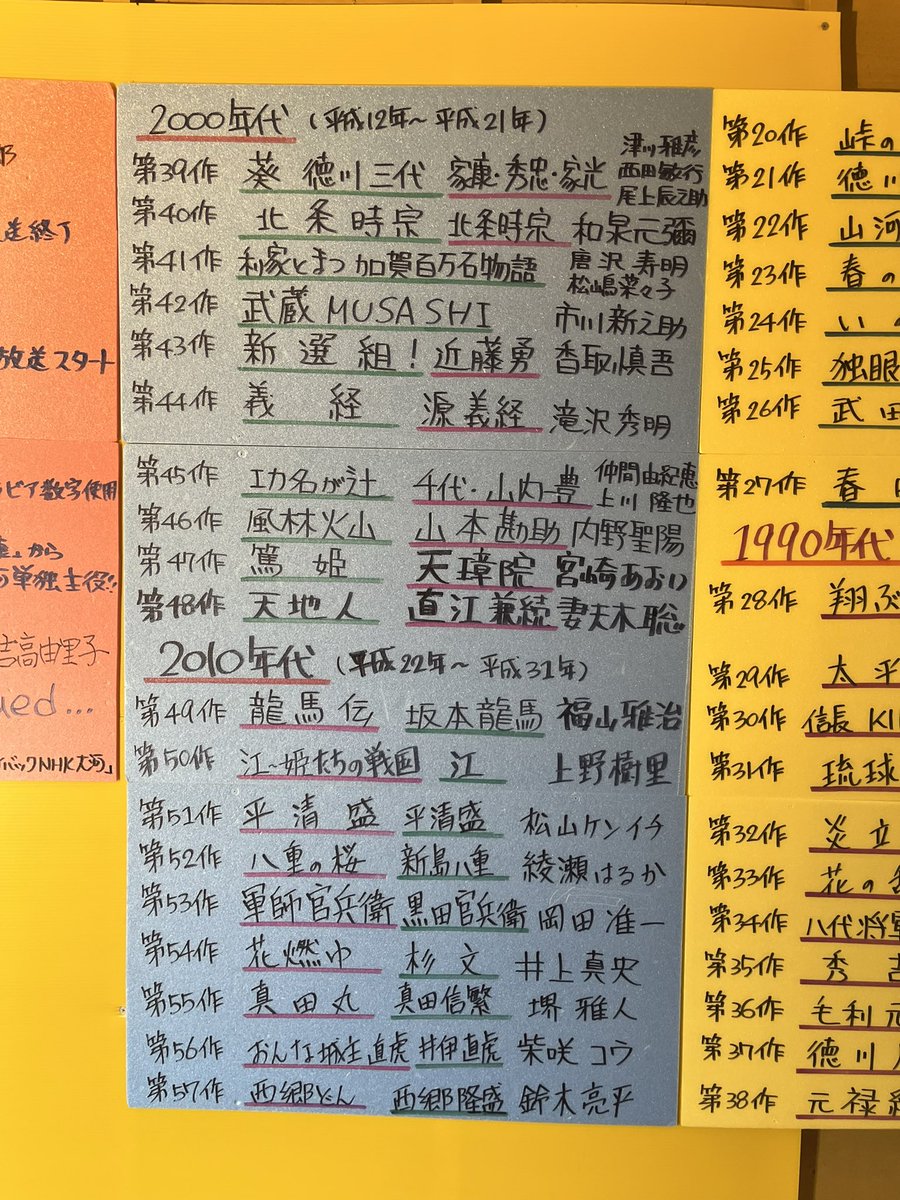 郎
送終了
放送スタート
ラビア数字使用
から
単独主役!!
吉高由里子
ued...
バックNHK大河」
2000年代 (平成12年~平成21年)
第39作 葵 徳川三代 家康・秀忠・家光 津川雅彦 西田敏行 尾上辰之助
第40作 北条時宗 北条時宗 和泉元彌
第41作 利家とまつ 加賀百万石物語 唐沢寿明 松嶋菜々子
第42作 武蔵 MUSASHI 市川新之助
第43作 新選組! 近藤勇 香取慎吾
第44作 義経 源義経 滝沢秀明
第45作 エカ名が辻 千代・山内一豊 仲間由紀恵 上川隆也
第46作 風林火山 山本勘助 内野聖陽
第47作 篤姫 天璋院 宮崎あおい
第48作 天地人 直江兼続 妻夫木聡
2010年代 (平成22年~平成31年)
第49作 龍馬伝 坂本龍馬 福山雅治
第50作 江~姫たちの戦国 江 上野樹里
第51作 平清盛 平清盛 松山ケンイチ
第52作 八重の桜 新島八重 綾瀬はるか
第53作 軍師官兵衛 黒田官兵衛 岡田准一
第54作 花燃ゆ 杉文 井上真央
第55作 真田丸 真田信繁 堺雅人
第56作 おんな城主直虎 井伊直虎 柴咲コウ
第57作 西郷どん 西郷隆盛 鈴木亮平
第20作 峠の
第21作 徳川
第22作 山河
第23作 春の
第24作 いの
第25作 独眼
第26作 武田
第27作 春
1990年代
第28作 翔ぶ
第29作 太平
第30作 信長 KI
第31作 琉球
第32作 炎立
第33作 花の
第34作 八代将軍
第35作 秀吉
第36作 毛利元
第37作 徳川
第38作 元禄